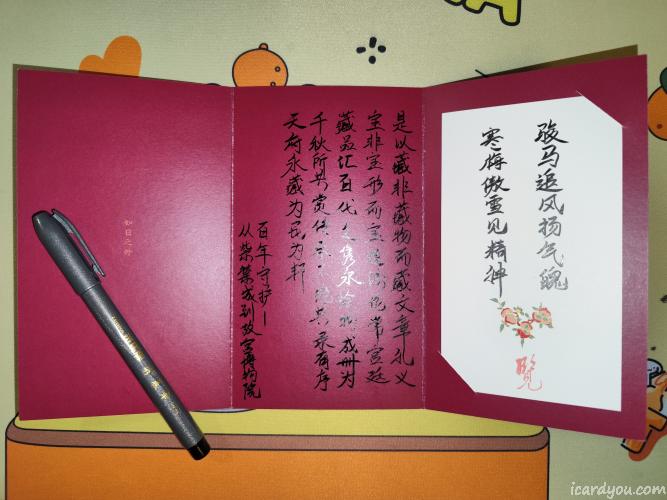 骏马追风扬气魄
寒梅傲雪见精神
覽
是以藏非藏物而藏文章礼义
宝非宝形而宝伦常宫廷
藏品汇百代之隽永成册为
千秋所共赏传承一统共录有序
天府永藏为民为邦
百年守护—
从紫禁城到故宫博物院
如日之升
icardyou.com